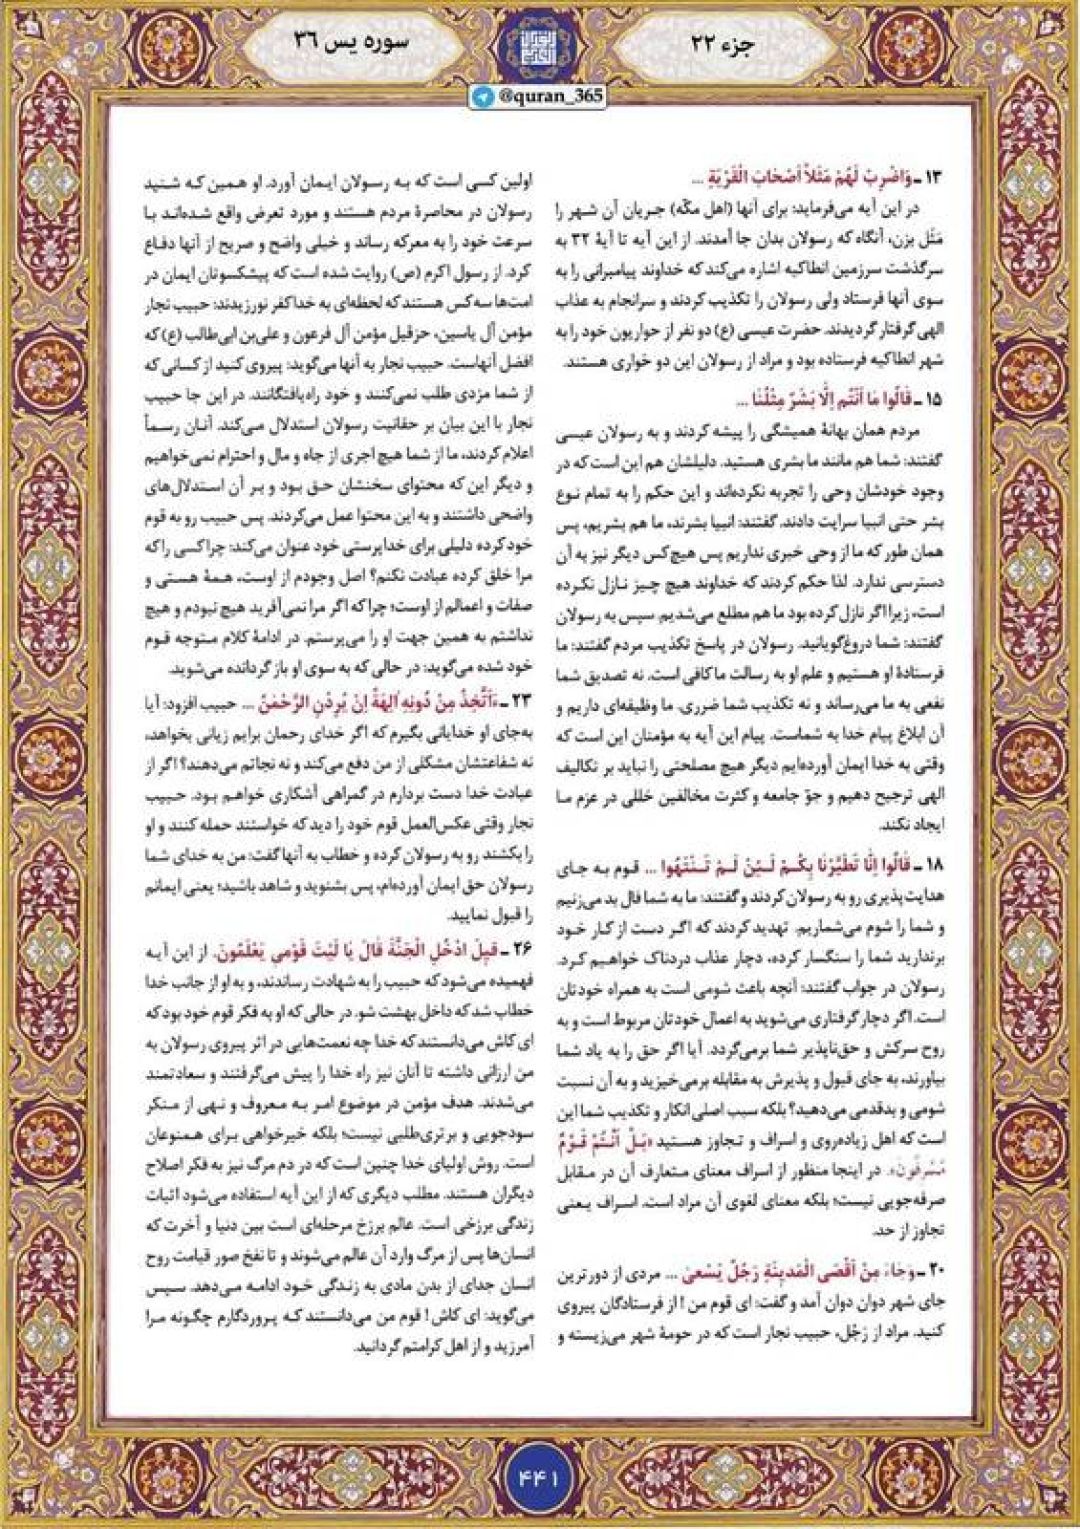 جزء ۲۲
سوره یس ۳۶
@quran_365
۱۳ ـ وَاضْرِبْ لَهُمْ مَثَلاً أَصْحَابَ الْقَرْیَةِ ...
در این آیه می‌فرماید: برای آنها (اهل مکّه) جریان آن شهر را
مَثَل بزن، آنگاه که رسولان بدان جا آمدند. از این آیه تا آیهٔ ۳۲ به
سرگذشت سرزمین انطاکیه اشاره می‌کند که خداوند پیامبرانی را به
سوی آنها فرستاد ولی رسولان را تکذیب کردند و سرانجام به عذاب
الهی گرفتار گردیدند. حضرت عیسی (ع) دو نفر از حواریون خود را به
شهر انطاکیه فرستاده بود و مراد از رسولان این دو حواری هستند.
۱۵ ـ قَالُوا مَا أَنْتُم إِلَّا بَشَر مِثْلُنَا ...
مردم همان بهانهٔ همیشگی را پیشه کردند و به رسولان عیسی
گفتند: شما هم مانند ما بشری هستید. دلیلشان هم این است که در
وجود خودشان وحی را تجربه نکرده‌اند و این حکم را به تمام نوع
بشر حتی انبیا سرایت دادند. گفتند: انبیا بشرند، ما هم بشریم، پس
همان طور که ما از وحی خبری نداریم پس هیچ‌کس دیگر نیز به آن
دسترسی ندارد. لذا حکم کردند که خداوند هیچ چیز نازل نکرده
است، زیرا اگر نازل کرده بود ما هم مطلع می‌شدیم. سپس به رسولان
گفتند: شما دروغ‌گویانید. رسولان در پاسخ تکذیب مردم گفتند: ما
فرستادهٔ او هستیم و علم او به رسالت ما کافی است. نه تصدیق شما
نفعی به ما می‌رساند و نه تکذیب شما ضرری. ما وظیفه‌ای داریم و
آن ابلاغ پیام خدا به شماست. پیام این آیه به مؤمنان این است که
وقتی به خدا ایمان آورده‌ایم دیگر هیچ مصلحتی را نباید بر تکالیف
الهی ترجیح دهیم و جوّ جامعه و کثرت مخالفین خللی در عزم ما
ایجاد نکند.
۱۸ ـ قَالُوا إِنَّا تَطَیَّرْنَا بِکُمْ لَئِنْ لَمْ تَنْتَهُوا ... قوم به جای
هدایت‌پذیری رو به رسولان کردند و گفتند: ما به شما فال بد می‌زنیم
و شما را شوم می‌شماریم. تهدید کردند که اگر دست از کار خود
برندارید شما را سنگسار کرده، دچار عذاب دردناک خواهیم کرد.
رسولان در جواب گفتند: آنچه باعث شومی است به همراه خودتان
است. اگر دچار گرفتاری می‌شوید به اعمال خودتان مربوط است و به
روح سرکش و حق‌ناپذیر شما برمی‌گردد. آیا اگر حق را به یاد شما
بیاورند، به جای قبول و پذیرش به مقابله برمی‌خیزید و به آن نسبت
شومی و بدقدمی می‌دهید؟ بلکه سبب اصلی انکار و تکذیب شما این
است که اهل زیاده‌روی و اسراف و تجاوز هستید «بَلْ أَنْتُمْ قَوْمٌ
مُسْرِفُونَ». در اینجا منظور از اسراف معنای متعارف آن در مقابل
صرفه‌جویی نیست؛ بلکه معنای لغوی آن مراد است. اسراف یعنی
تجاوز از حد.
۲۰ ـ وَجَاءَ مِنْ أَقْصَی الْمَدِینَةِ رَجُلٌ یَسْعَیٰ ... مردی از دورترین
جای شهر دوان دوان آمد و گفت: ای قوم من! از فرستادگان پیروی
کنید. مراد از رَجُل، حبیب نجار است که در حومهٔ شهر می‌زیسته و
اولین کسی است که به رسولان ایمان آورد. او همین که شنید
رسولان در محاصرهٔ مردم هستند و مورد تعرض واقع شده‌اند با
سرعت خود را به معرکه رساند و خیلی واضح و صریح از آنها دفاع
کرد. از رسول اکرم (ص) روایت شده است که پیشکسوتان ایمان در
امت‌ها سه کس هستند که لحظه‌ای به خدا کفر نورزیدند: حبیب نجار
مؤمن آل یاسین، حزقیل مؤمن آل فرعون و علی‌بن ابی‌طالب (ع) که
افضل آنهاست. حبیب نجار به آنها می‌گوید: پیروی کنید از کسانی که
از شما مزدی طلب نمی‌کنند و خود راه‌یافتگانند. در این جا حبیب
نجار با این بیان بر حقانیت رسولان استدلال می‌کند. آنان رسماً
اعلام کردند، ما از شما هیچ اجری از جاه و مال و احترام نمی‌خواهیم
و دیگر این که محتوای سخنشان حق بود و بر آن استدلال‌های
واضحی داشتند و به این محتوا عمل می‌کردند. پس حبیب رو به قوم
خود کرده دلیلی برای خداپرستی خود عنوان می‌کند: چرا کسی را که
مرا خلق کرده عبادت نکنم؟ اصل وجودم از اوست، همهٔ هستی و
صفات و اعمالم از اوست؛ چرا که اگر مرا نمی‌آفرید هیچ نبودم و هیچ
نداشتم به همین جهت او را می‌پرستم. در ادامهٔ کلام متوجه قوم
خود شده می‌گوید: در حالی که به سوی او باز گردانده می‌شوید.
۲۳ ـ ءَأَتَّخِذُ مِنْ دُونِهِ آلِهَةً إِنْ یُرِدْنِ الرَّحْمَنُ ... حبیب افزود: آیا
به‌جای او خدایانی بگیرم که اگر خدای رحمان برایم زیانی بخواهد،
نه شفاعتشان مشکلی از من دفع می‌کند و نه نجاتم می‌دهند؟ اگر از
عبادت خدا دست بردارم در گمراهی آشکاری خواهم بود. حبیب
نجار وقتی عکس‌العمل قوم خود را دید که خواستند حمله کنند و او
را بکشند رو به رسولان کرده و خطاب به آنها گفت: من به خدای شما
رسولان حق ایمان آورده‌ام، پس بشنوید و شاهد باشید؛ یعنی ایمانم
را قبول نمایید.
۲۶ ـ قِیلَ ادْخُلِ الْجَنَّةَ قَالَ یَا لَیْتَ قَوْمِی یَعْلَمُونَ. از این آیه
فهمیده می‌شود که حبیب را به شهادت رساندند، و به او از جانب خدا
خطاب شد که داخل بهشت شو. در حالی که او به فکر قوم خود بود که
ای کاش می‌دانستند که خدا چه نعمت‌هایی در اثر پیروی رسولان به
من ارزانی داشته تا آنان نیز راه خدا را پیش می‌گرفتند و سعادتمند
می‌شدند. هدف مؤمن در موضوع امر به معروف و نهی از منکر
سودجویی و برتری‌طلبی نیست؛ بلکه خیرخواهی برای همنوعان
است. روش اولیای خدا چنین است که در دم مرگ نیز به فکر اصلاح
دیگران هستند. مطلب دیگری که از این آیه استفاده می‌شود اثبات
زندگی برزخی است. عالم برزخ مرحله‌ای است بین دنیا و آخرت که
انسان‌ها پس از مرگ وارد آن عالم می‌شوند و تا نفخ صور قیامت روح
انسان جدای از بدن مادی به زندگی خود ادامه می‌دهد. سپس
می‌گوید: ای کاش! قوم من می‌دانستند که پروردگارم چگونه مرا
آمرزید و از اهل کرامتم گردانید.
۴۴۱